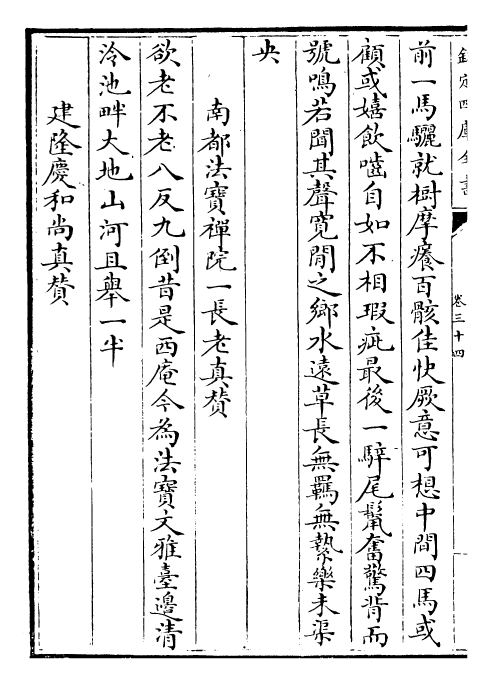 欽定四庫全書
卷三十四
前一馬驪就樹摩癢百骸佳快厥意可想中間四馬或
顧或嬉飲嚙自如不相瑕疵最後一騂尾鬣奮驚背而
號鳴若聞其聲寛閒之鄉水遠草長無羈無縶樂未渠
央
南都法寶禪院一長老真贊
欲老不老八反九倒昔是西庵今為法寶文雅臺邊清
泠池畔大地山河且舉一半
建隆慶和尚真贊